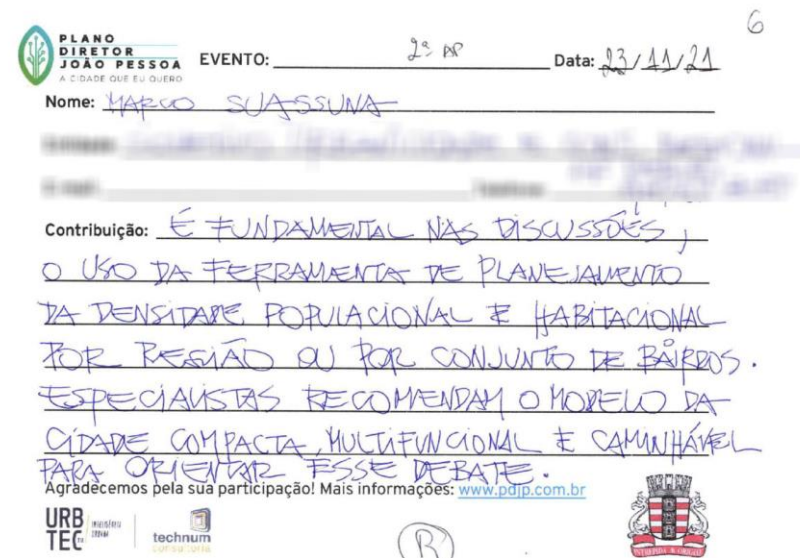 6
PLANO
DIRETOR
JOÃO PESSOA
A CIDADE QUE EU QUERO
EVENTO: 2ª AP Data: 23/11/21
Nome: MARCO SUASSUNA
Contribuição: É FUNDAMENTAL NAS DISCUSSÕES,
O USO DA FERRAMENTA DE PLANEJAMENTO
DA DENSIDADE POPULACIONAL E HABITACIONAL
POR REGIÃO OU POR CONJUNTO DE BAIRROS.
ESPECIALISTAS RECOMENDAM O MODELO DA
CIDADE COMPACTA, MULTIFUNCIONAL E CAMINHÁVEL
PARA ORIENTAR ESSE DEBATE.
Agradecemos pela sua participação! Mais informações: www.pdjp.com.br
URB
TEC
technum
consultoria
B